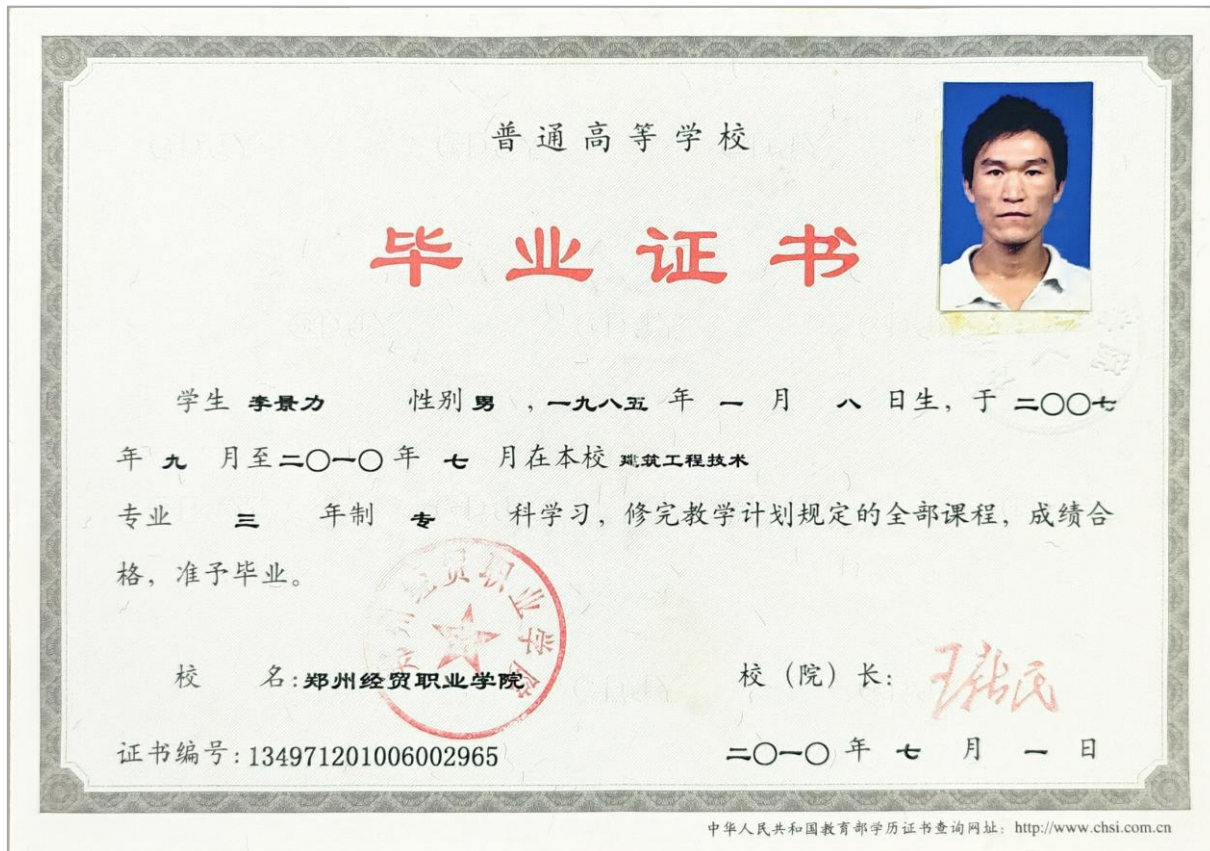 普通高等学校
毕业证书
学生 李景力 性别 男 ，一九八五 年 一 月 八 日生，于 二〇〇七
年 九 月至 二〇一〇 年 七 月在本校 建筑工程技术
专业 三 年制 专 科学习，修完教学计划规定的全部课程，成绩合
格，准予毕业。
郑州经贸职业学院
校 名：郑州经贸职业学院
校（院）长：
证书编号：134971201006002965
二〇一〇 年 七 月 一 日
中华人民共和国教育部学历证书查询网址：http://www.chsi.com.cn